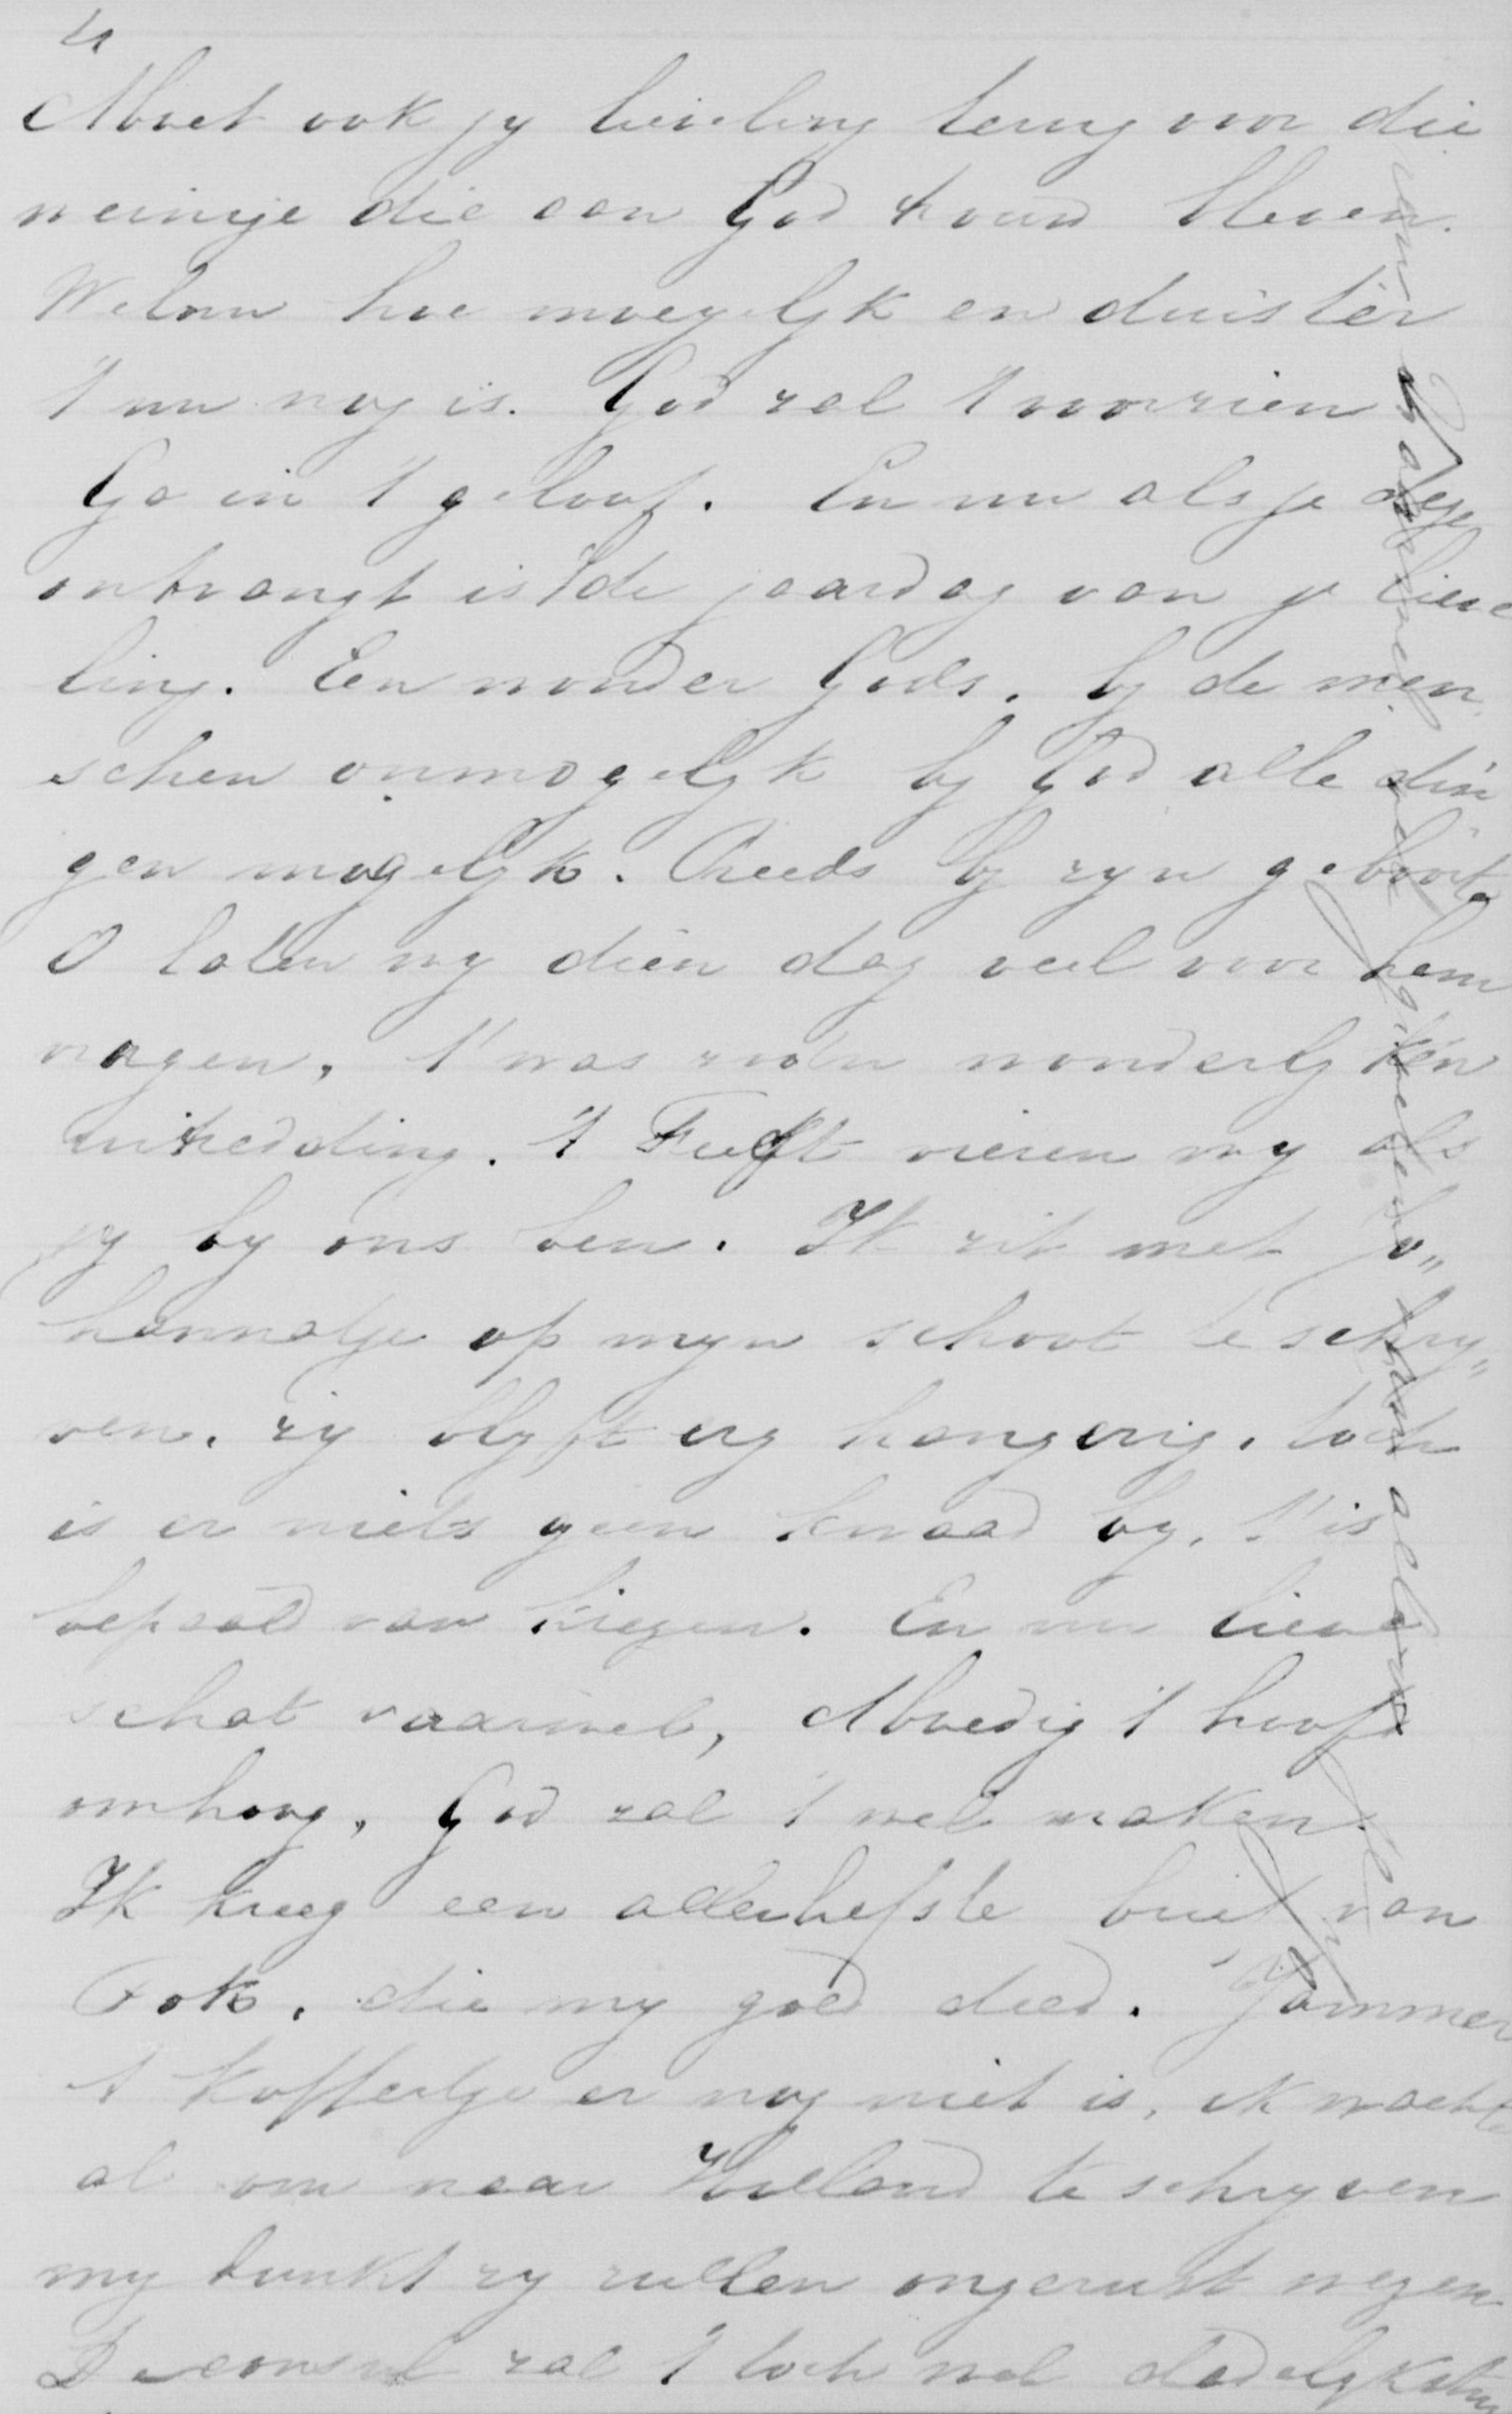 4
Moet ook jy lieveling terug voor die
weinige die aan God trouw bleven.
Welnu hoe moeyelyk en duister
't nu nog is. God zal 't voorzien
Ga in 't geloof. En nu als je deze
ontvangt is 't de jaardag van je lieve
ling. Een wonder Gods. by de men
schen onmogelyk by God alle din
gen mogelyk. Reeds by zyn geboorte
O laten wy dien dag veel voor hem
vragen, 't was zoo'n wonderlyken
uitredding. 't Feest vieren wy als
jy by ons ben. Ik zit met Jo„
hannatje op myn schoot te schry„
ven. zy blyft erg hangerig, toch
is er niets geen kwaad by, 't is
bepaald van kiezen. En nu lieve
schat vaarwel, Moedig 't hoofd
omhoog, God zal 't wel maken.
Ik kreeg een allerliefste brief van
Fok. die my goed deed. Jammer
't koffertje er nog niet is, ik wachtte
al om naar Holland te schryven
my dunkt zy zullen ongerust wezen
De consul zal 't toch wel dadelyk